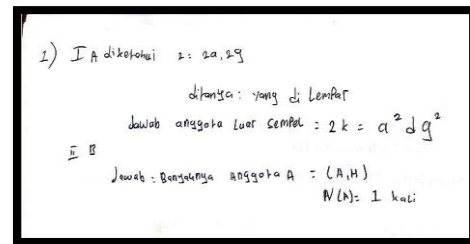 1) I A diketahui 2 : 2a, 2g
ditanya : yang di Lempar
Jawab anggota Luar Sempel = 2k = a² d g²
II B
Jawab : Banyaknya Anggota A = (A,H)
N(A) = 1 kali